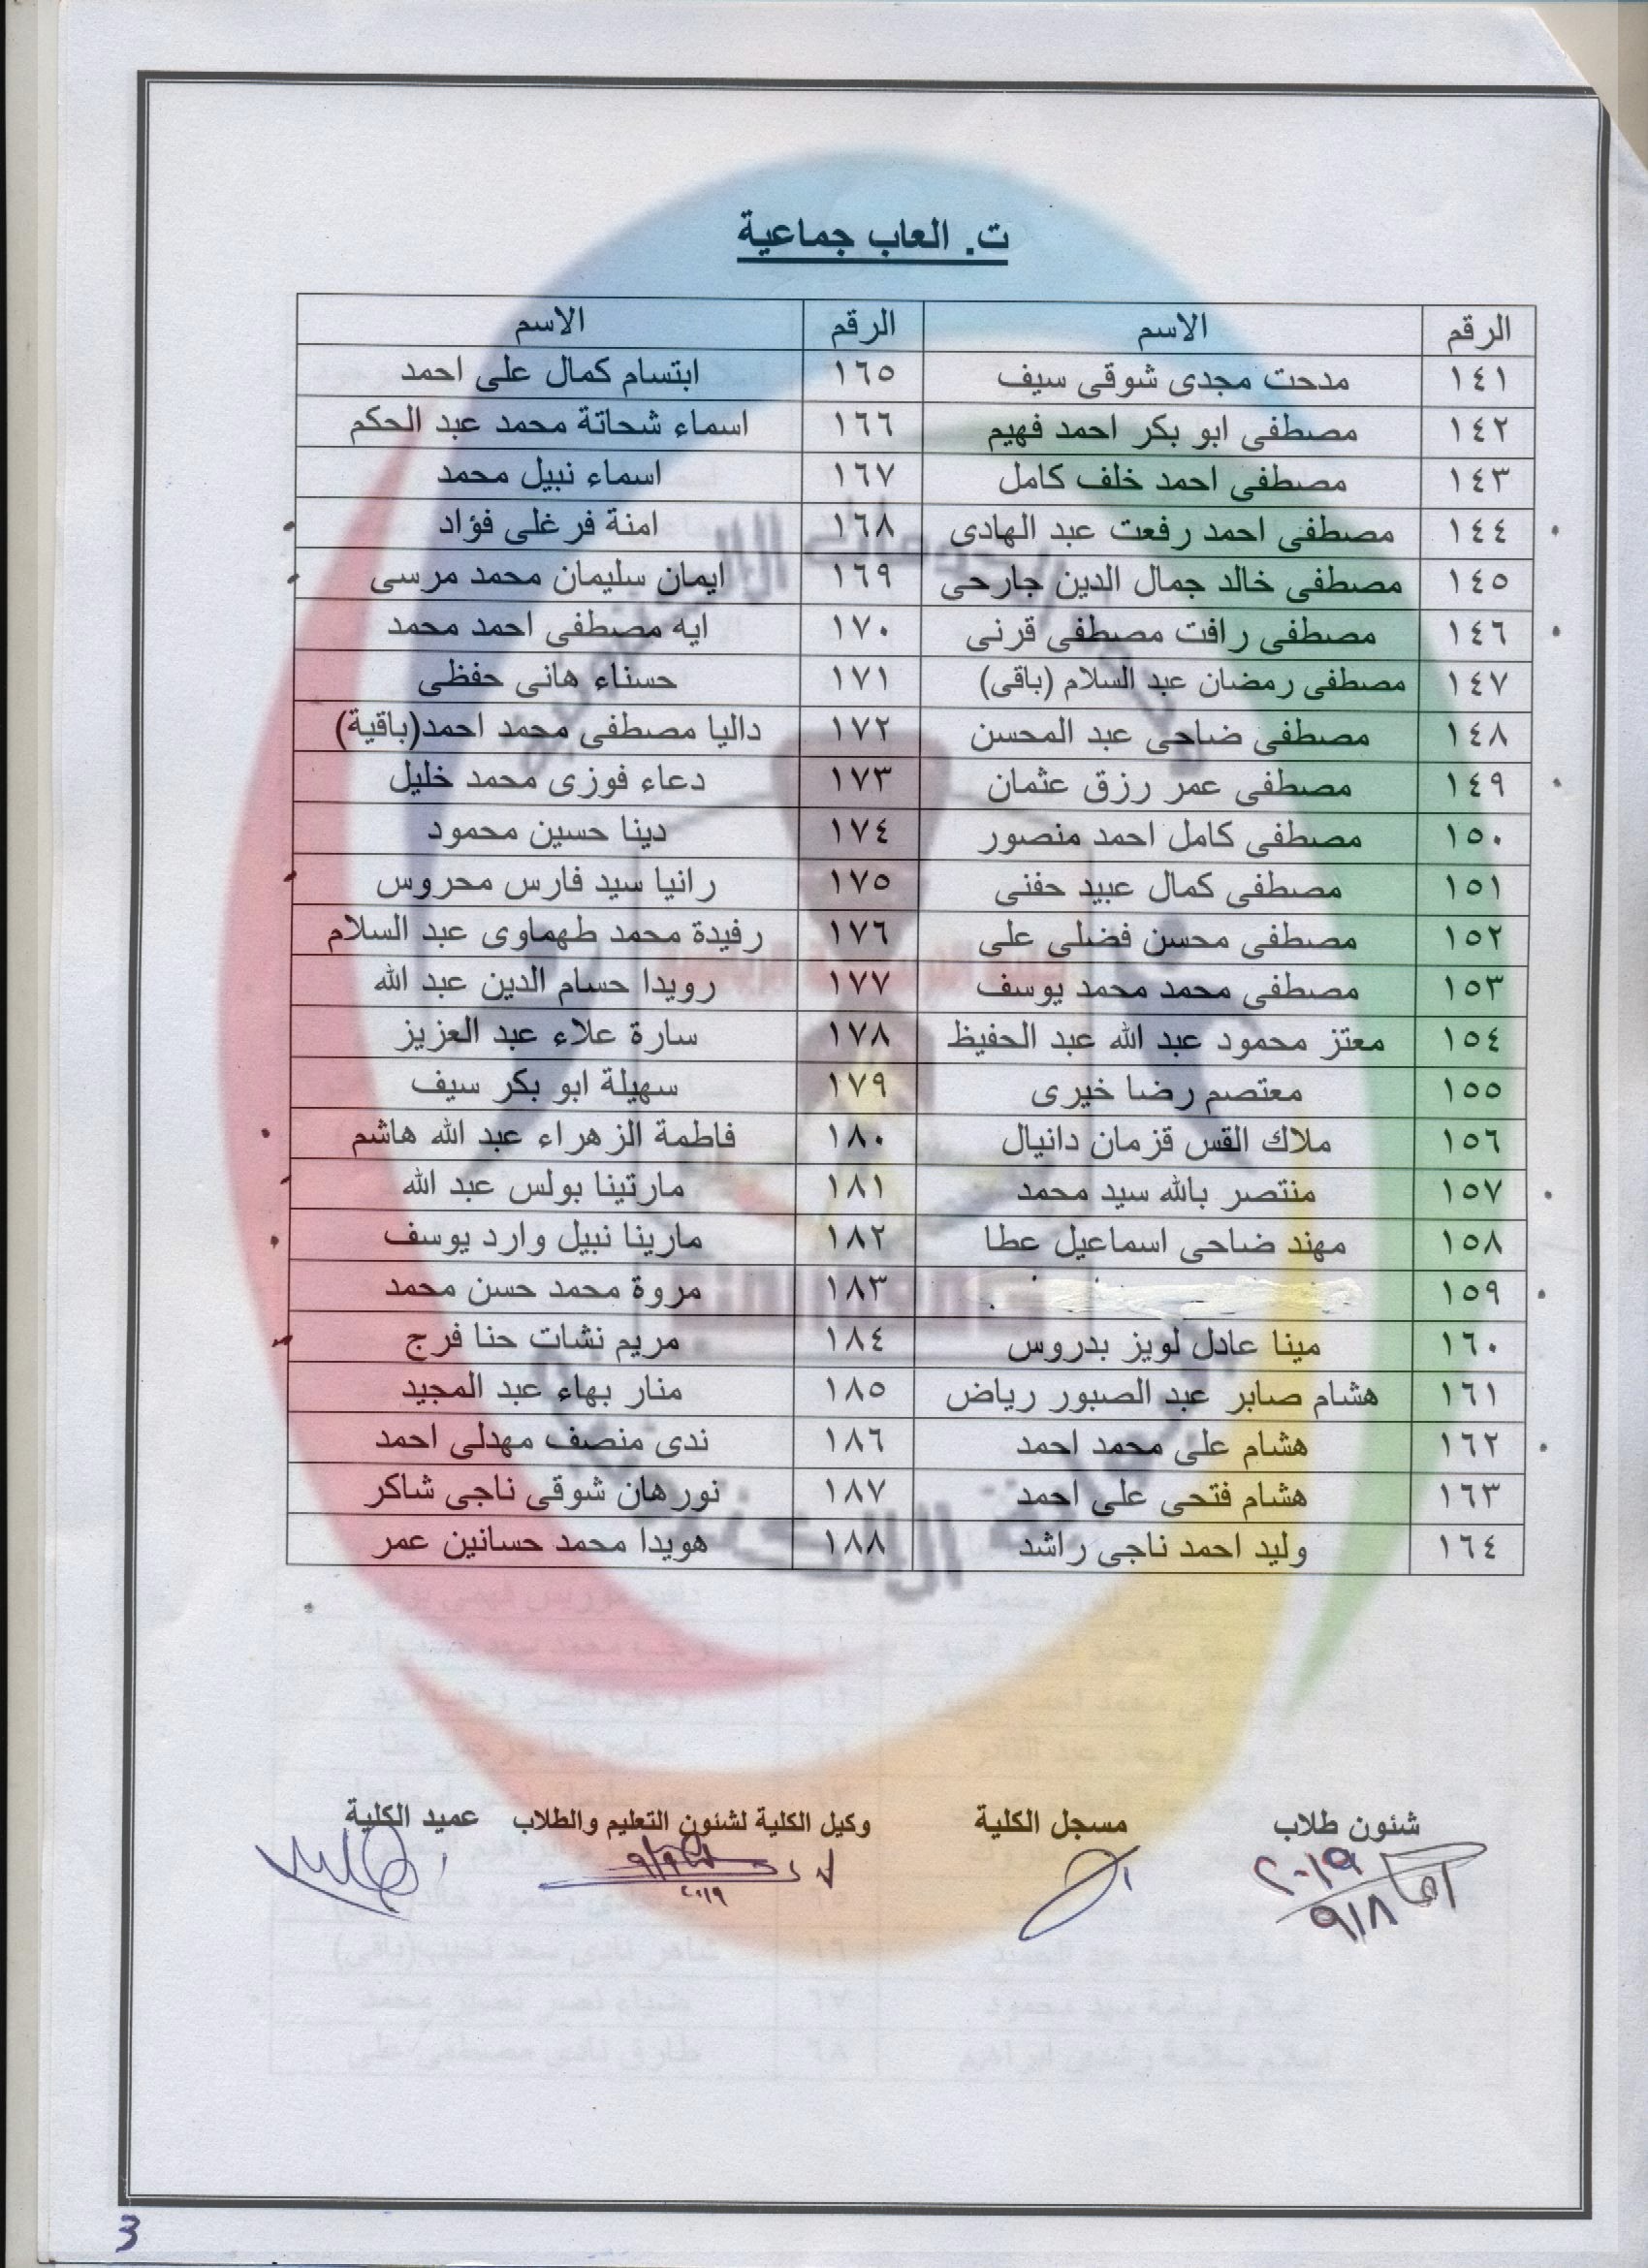 ت. العاب جماعية
الرقم الاسم الرقم الاسم
١٤١ مدحت مجدى شوقى سيف ١٦٥ ابتسام كمال على احمد
١٤٢ مصطفى ابو بكر احمد فهيم ١٦٦ اسماء شحاتة محمد عبد الحكم
١٤٣ مصطفى احمد خلف كامل ١٦٧ اسماء نبيل محمد
١٤٤ مصطفى احمد رفعت عبد الهادى ١٦٨ امنة فرغلى فؤاد
١٤٥ مصطفى خالد جمال الدين جارحى ١٦٩ ايمان سليمان محمد مرسى
١٤٦ مصطفى رافت مصطفى قرنى ١٧٠ ايه مصطفى احمد محمد
١٤٧ مصطفى رمضان عبد السلام (باقى) ١٧١ حسناء هانى حفظى
١٤٨ مصطفى ضاحى عبد المحسن ١٧٢ داليا مصطفى محمد احمد(باقية)
١٤٩ مصطفى عمر رزق عثمان ١٧٣ دعاء فوزى محمد خليل
١٥٠ مصطفى كامل احمد منصور ١٧٤ دينا حسين محمود
١٥١ مصطفى كمال عبيد حفنى ١٧٥ رانيا سيد فارس محروس
١٥٢ مصطفى محسن فضلى على ١٧٦ رفيدة محمد طهماوى عبد السلام
١٥٣ مصطفى محمد محمد يوسف ١٧٧ رويدا حسام الدين عبد الله
١٥٤ معتز محمود عبد الله عبد الحفيظ ١٧٨ سارة علاء عبد العزيز
١٥٥ معتصم رضا خيرى ١٧٩ سهيلة ابو بكر سيف
١٥٦ ملاك القس قزمان دانيال ١٨٠ فاطمة الزهراء عبد الله هاشم
١٥٧ منتصر بالله سيد محمد ١٨١ مارتينا بولس عبد الله
١٥٨ مهند ضاحى اسماعيل عطا ١٨٢ مارينا نبيل وارد يوسف
١٥٩ ١٨٣ مروة محمد حسن محمد
١٦٠ مينا عادل لويز بدروس ١٨٤ مريم نشات حنا فرج
١٦١ هشام صابر عبد الصبور رياض ١٨٥ منار بهاء عبد المجيد
١٦٢ هشام على محمد احمد ١٨٦ ندى منصف مهدلى احمد
١٦٣ هشام فتحى على احمد ١٨٧ نورهان شوقى ناجى شاكر
١٦٤ وليد احمد ناجى راشد ١٨٨ هويدا محمد حسانين عمر
شئون طلاب مسجل الكلية وكيل الكلية لشئون التعليم والطلاب عميد الكلية
٢٠١٩
٩/٨
٢٠١٩
3